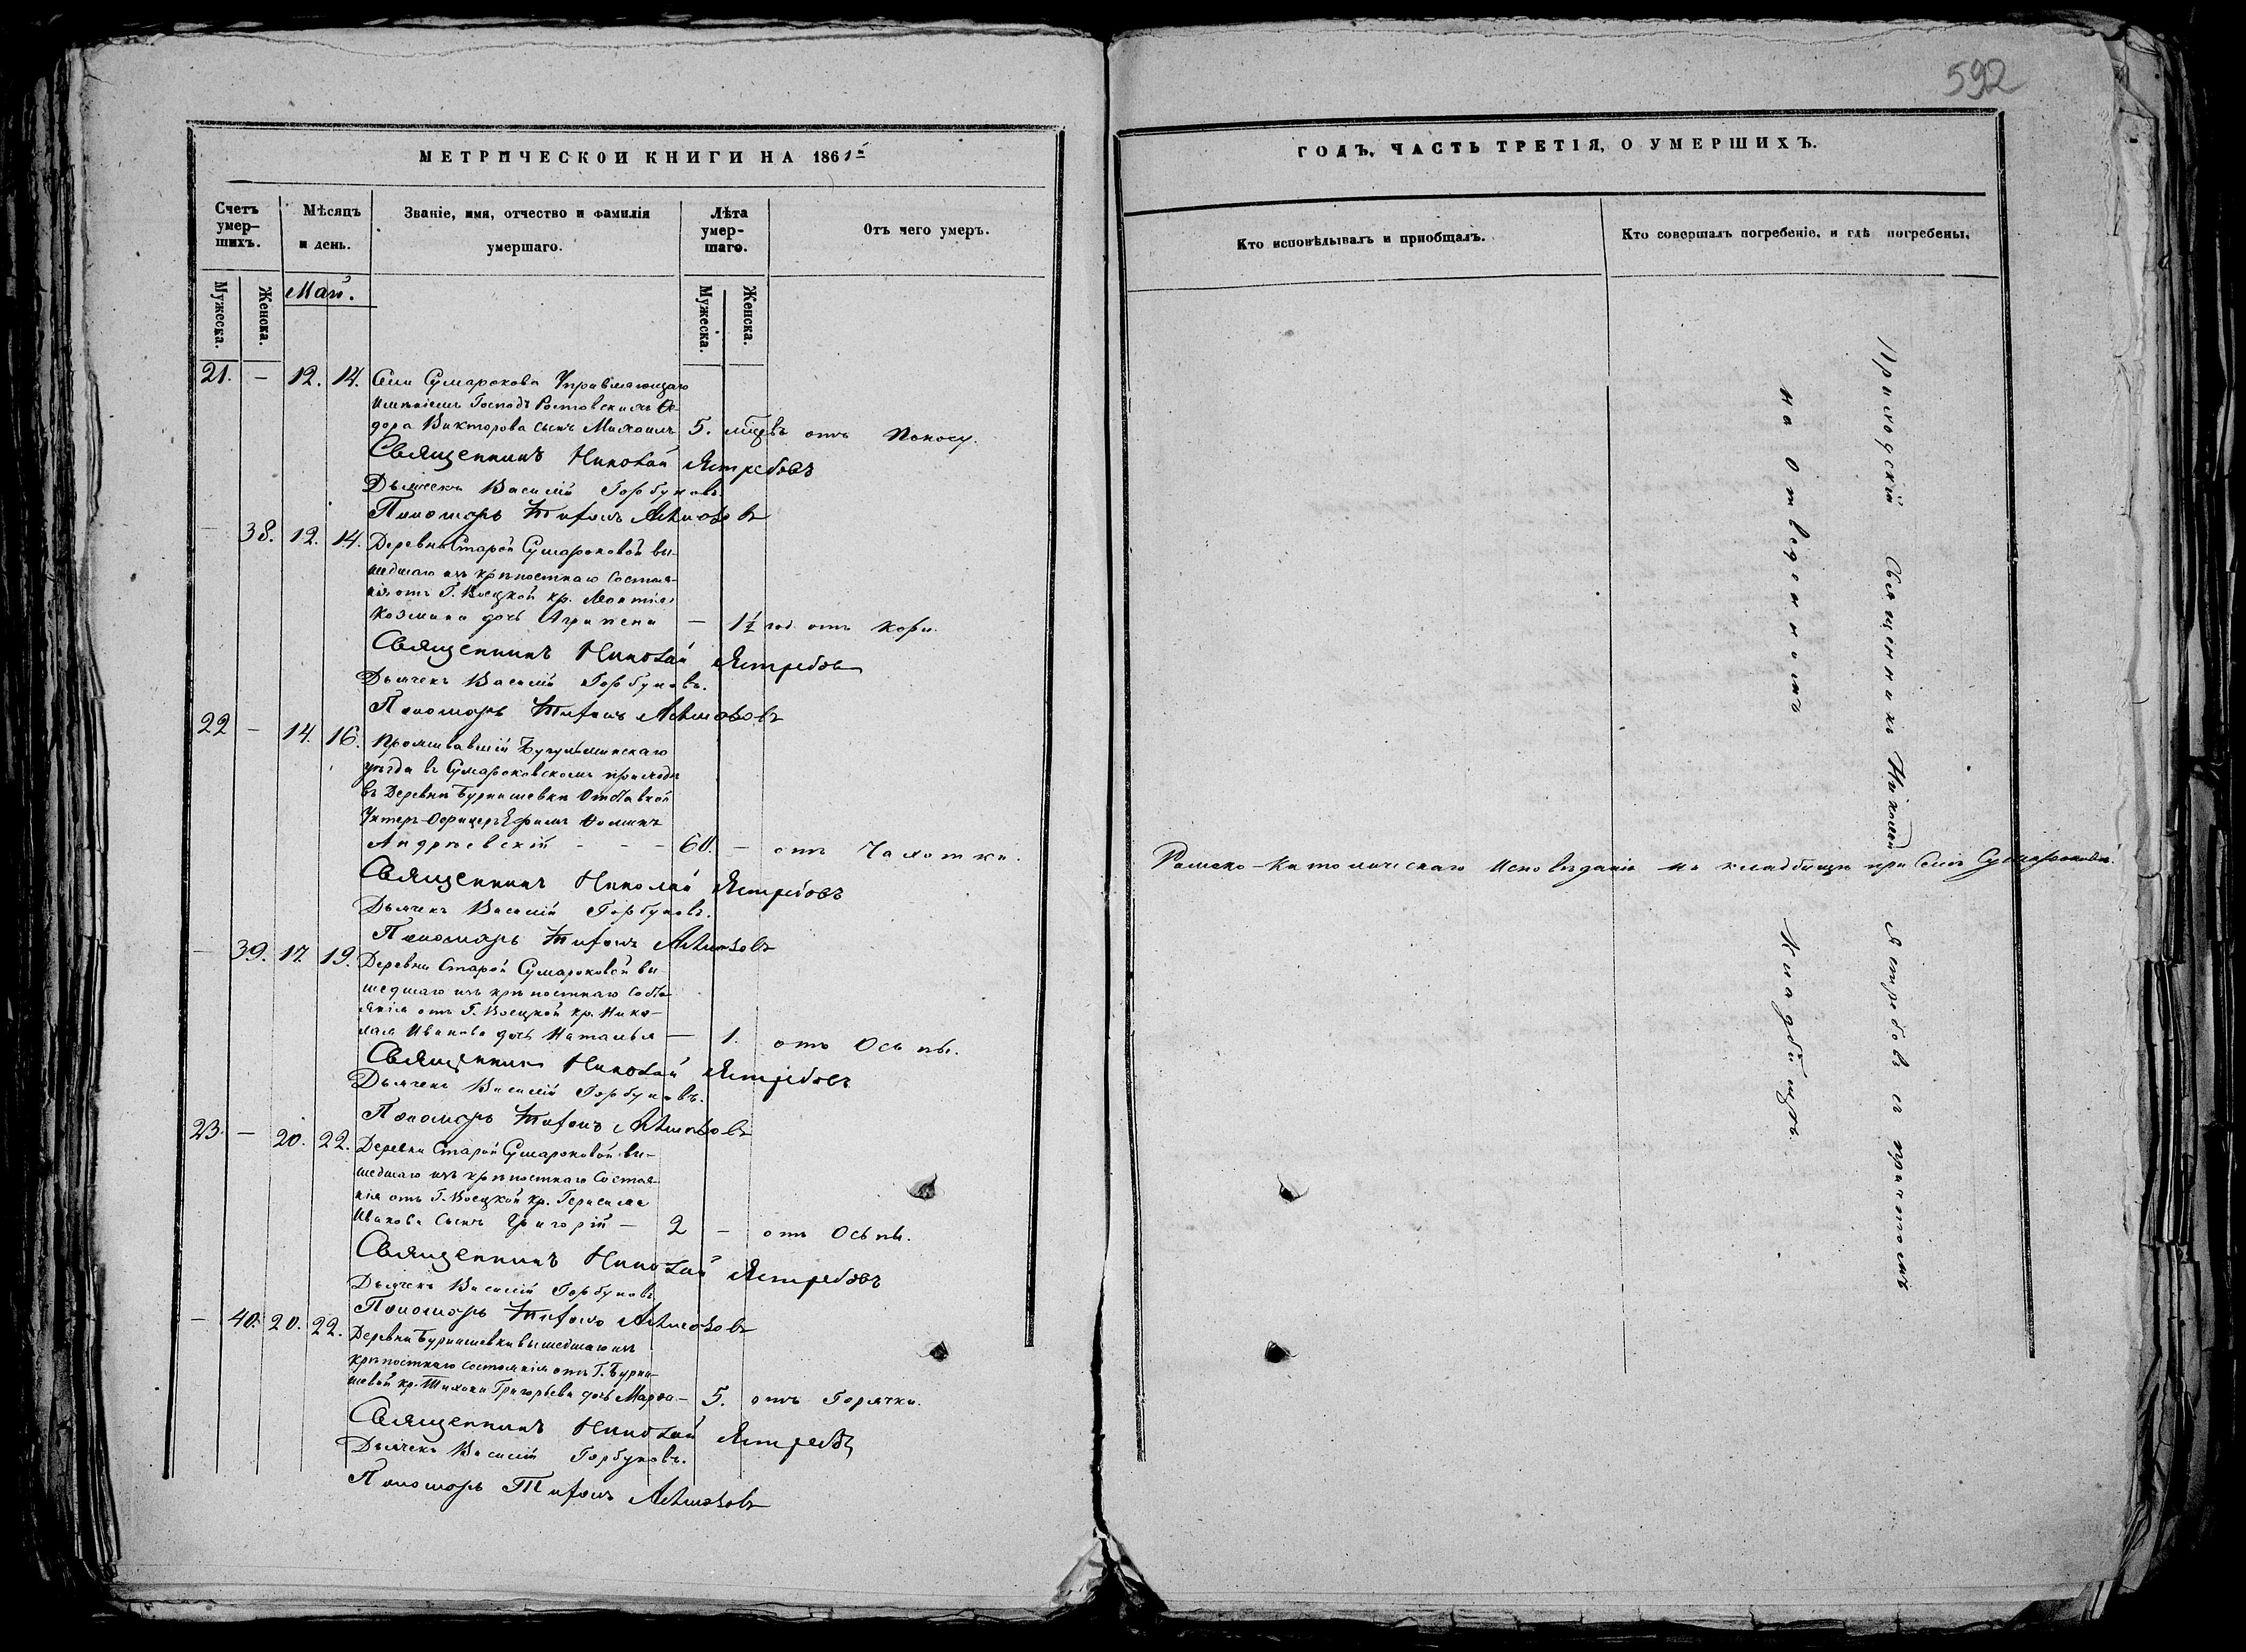 592
МЕТРИЧЕСКОЙ КНИГИ НА 1861й
Счетъ умер-
шихъ.
Мѣсяцъ
и день.
Званіе, имя, отчество и фамилія
умершаго.
Лѣта
умер-
шаго.
Отъ чего умеръ.
Мужеска.
Женска.
Май.
Мужеска.
Женска.
21. — 12. 14. Села Сумарокова Управляющаго
имѣніемъ Господъ Ростовскихъ Ѳе-
дора Викторова сынъ Михаилъ 5. мѣсцвъ отъ Поносу.
Священникъ Николай Ястребовъ
Дьячекъ Василій Горбуновъ
Пономарь Тифонъ
— 38. 12. 14. Деревни Старой Сумароковой вы-
шедшаго изъ крѣпостнаго состоя-
нія отъ Г. Воецкой кр. Леонтія
Козмина дочь Агрипена — 1½ год. отъ Кори.
Священникъ Николай Ястребовъ
Дьячекъ Василій Горбуновъ.
Пономарь Тифонъ
22 — 14. 16. Проживавшій Бугульминскаго
уѣзда въ Сумароковскомъ приходѣ
въ Деревни Бурнашевки Отставной
Унтеръ-Офицеръ Ефимъ Фоминъ
Андріевскій - - - 60. — отъ Чахотки.
Священникъ Николай Ястребовъ
Дьячекъ Василій Горбуновъ.
Пономарь Тифонъ
— 39. 17. 19. Деревни Старой Сумароковой вы
шедшаго изъ крѣпостнаго состо-
янія отъ Г. Воецкой кр. Нико-
лая Иванова дочь Наталья — 1. отъ Осьпы.
Священникъ Николай Ястребовъ
Дьячекъ Василій Горбуновъ.
Пономарь Тифонъ
23. — 20. 22. Деревни Старой Сумароковой вы-
шедшаго изъ крѣпостнаго состоя-
нія отъ Г. Воецкой кр. Герасима
Иванова сынъ Григорій — 2 — отъ Осьпы.
Священникъ Николай Ястребовъ
Дьячекъ Василій Горбуновъ
Пономарь Тифонъ
— 40. 20. 22. Деревни Бурнашевки вышедшаго изъ
крѣпостнаго состоянія отъ Г. Бурна-
шевой кр. Тихона Григорьева дочь Марѳа — 5. отъ Горячки.
Священникъ Николай Ястребовъ
Дьячекъ Василій Горбуновъ.
Пономарь Тифонъ
ГОДЪ, ЧАСТЬ ТРЕТІЯ, О УМЕРШИХЪ.
Кто исповѣдывалъ и пріобщалъ.
Кто совершалъ погребеніе, и гдѣ погребены.
Римско-Католическаго Исповѣданія на кладбищѣ при Селѣ Сумароковѣ.
Приходскій Священникъ Николай Ястребовъ съ причтомъ
на Отведенномъ Кладбищѣ.